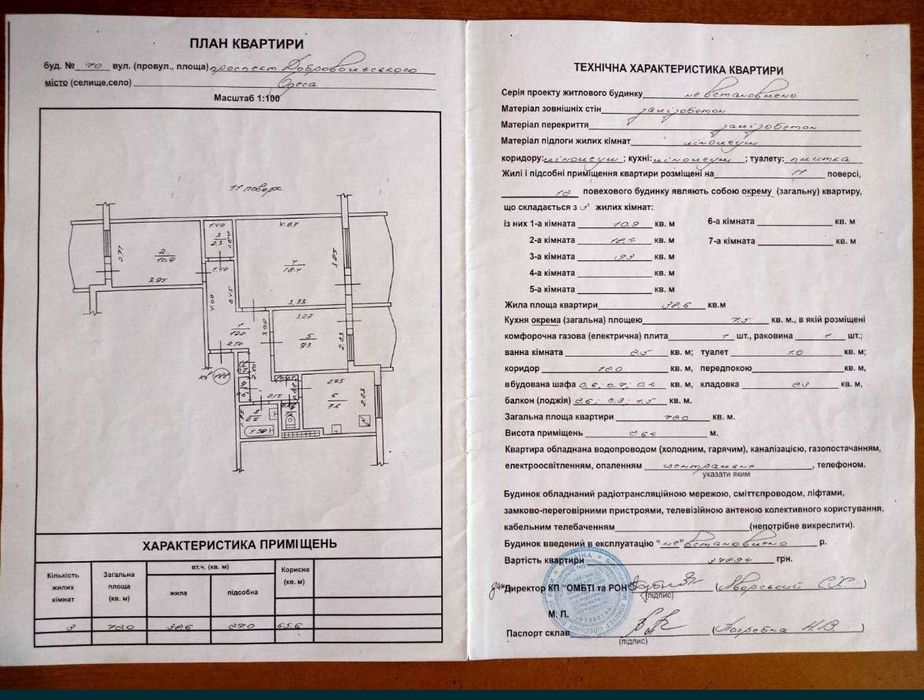 ПЛАН КВАРТИРИ
буд. № 70 вул. (провул., площа) проспект Добровольського
місто (селище,село) Одеса
Масштаб 1:100
11 поверх
1.40
4.87
2
10.9
3.95
3
2.3
4
18.4
3.33
1.40
3.27
5
9.3
3.00
1
12.0
2.75
6
7.5
2.15
ХАРАКТЕРИСТИКА ПРИМІЩЕНЬ
Кількість жилих кімнат
Загальна площа (кв. м)
вт.ч. (кв. м)
жила
підсобна
Корисна (кв. м)
3 72.0 38.6 27.0 65.6
ТЕХНІЧНА ХАРАКТЕРИСТИКА КВАРТИРИ
Серія проекту житлового будинку не встановлено
Матеріал зовнішніх стін залізобетон
Матеріал перекриття залізобетон
Матеріал підлоги жилих кімнат лінолеум
коридору: лінолеум ; кухні: лінолеум ; туалету: плитка
Жилі і підсобні приміщення квартири розміщені на 11 поверсі,
повехового будинку являють собою окрему (загальну) квартиру,
що складається з 3 жилих кімнат:
із них 1-а кімната 10.9 кв. м 6-а кімната кв. м
2-а кімната 18.4 кв. м 7-а кімната кв. м
3-а кімната 9.3 кв. м
4-а кімната кв. м
5-а кімната кв. м
Жила площа квартири 38.6 кв.м
Кухня окрема (загальна) площею 7.5 кв. м., в якій розміщені
комфорочна газова (електрична) плита 1 шт., раковина 1 шт.;
ванна кімната 2.5 кв. м; туалет 1.0 кв. м;
коридор 12.0 кв. м, передпокою кв. м,
вбудована шафа 0.6; 0.7; 0.4 кв. м, кладовка 2.3 кв. м,
балкон (лоджія) 2.6; 2.3; 1.5 кв. м.
Загальна площа квартири 72.0 кв. м.
Висота приміщень 2.64 м.
Квартира обладнана водопроводом (холодним, гарячим), каналізацією, газопостачанням,
електроосвітленням, опаленням центральне , телефоном.
указати яким
Будинок обладнаний радіотрансляційною мережою, сміттєпроводом, ліфтами,
замково-переговірними пристроями, телевізійною антеною колективного користування,
кабельним телебаченням (непотрібне викреслити).
Будинок введений в експлуатацію "не" встановлено р.
Вартість квартири грн.
Директор КП "ОМБТІ та РОН"
(підпис)
М. П.
Паспорт склав (Погребна Н.В.)
(підпис)